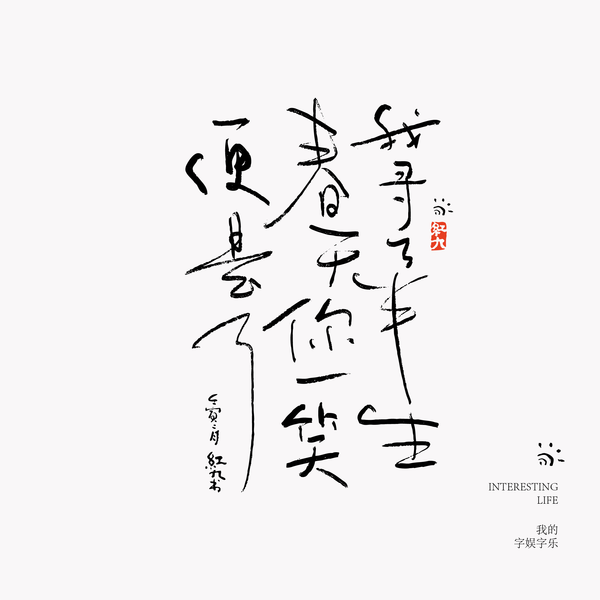 我寻了半生
春天你一笑
便是了
壬寅二月 红九书
红九
INTERESTING
LIFE
我的
字娱字乐